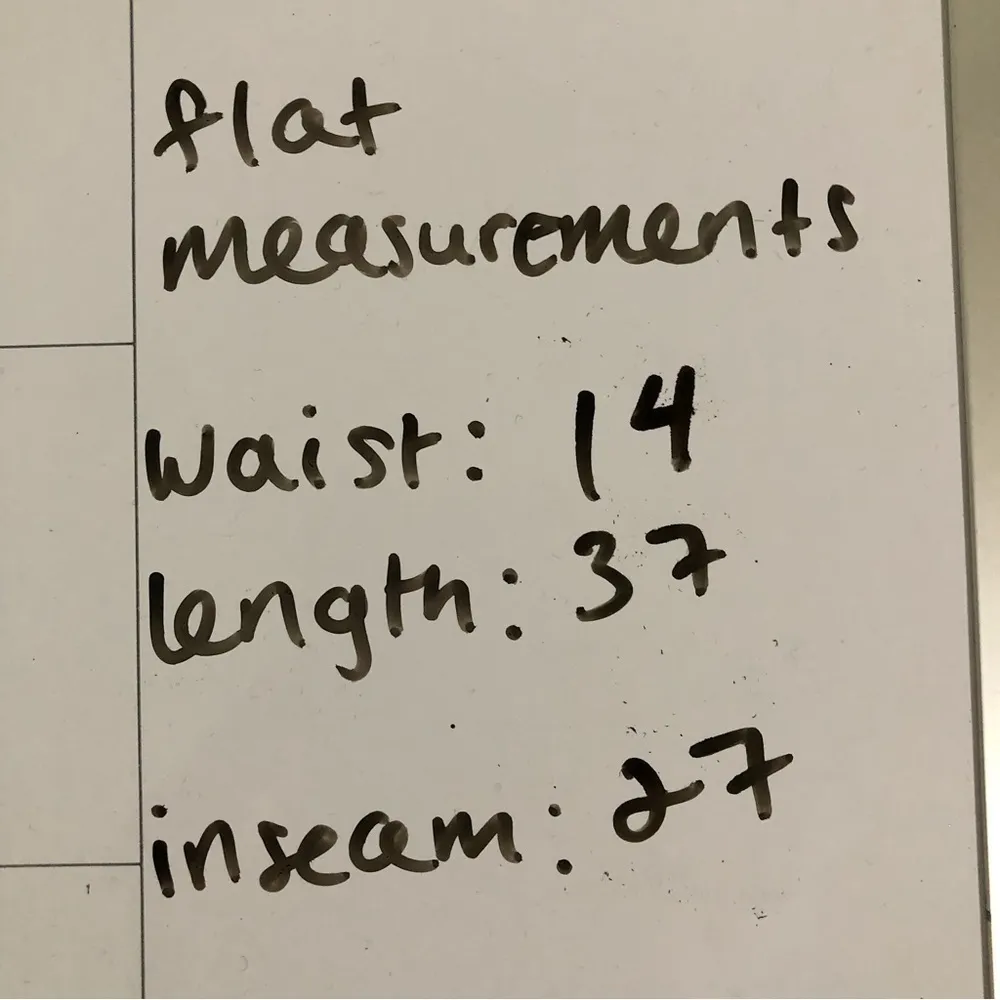 flat
measurements
waist: 14
length: 37
inseam: 27